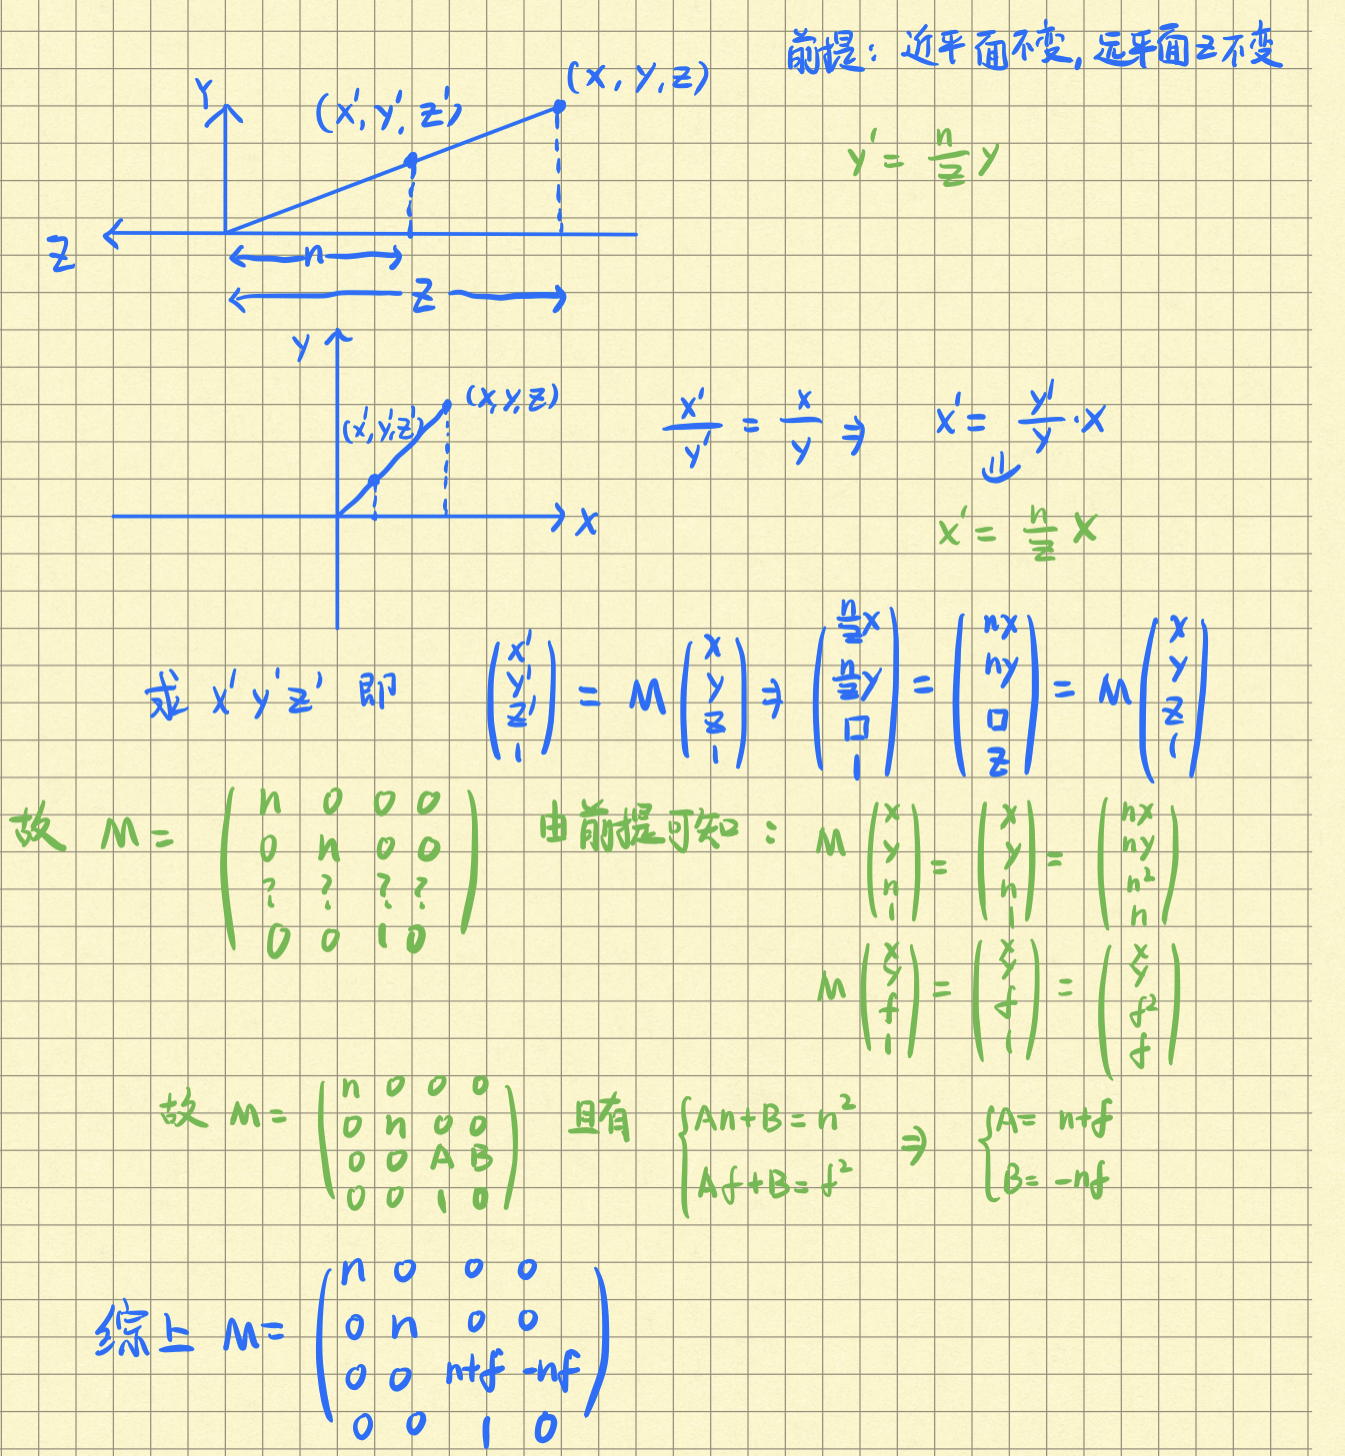 前提：近平面不变，远平面z不变
Y
(x', y', z')
(x, y, z)
y' = n/z y
Z
n
z
Y
(x', y', z')
(x, y, z)
X
x'/y' = x/y ⇒ x' = y'/y · x
⇓
x' = n/z x
求 x' y' z' 即 (x' y' z' 1) = M (x y z 1) ⇒ (n/z x n/z y □ 1) = (nx ny □ z) = M (x y z 1)
故 M = (n 0 0 0
0 n 0 0
? ? ? ?
0 0 1 0)
由前提可知：M (x y n 1) = (x y n 1) = (nx ny n² n)
M (x y f 1) = (x y f 1) = (x y f² f)
故 M = (n 0 0 0
0 n 0 0
0 0 A B
0 0 1 0)
且有 { An+B = n²
Af+B = f²
⇒ { A = n+f
B = -nf
综上 M = (n 0 0 0
0 n 0 0
0 0 n+f -nf
0 0 1 0)